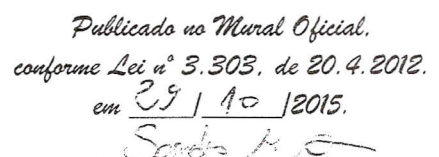 Publicado no Mural Oficial,
conforme Lei nº 3.303, de 20.4.2012.
em 29 / 10 /2015.